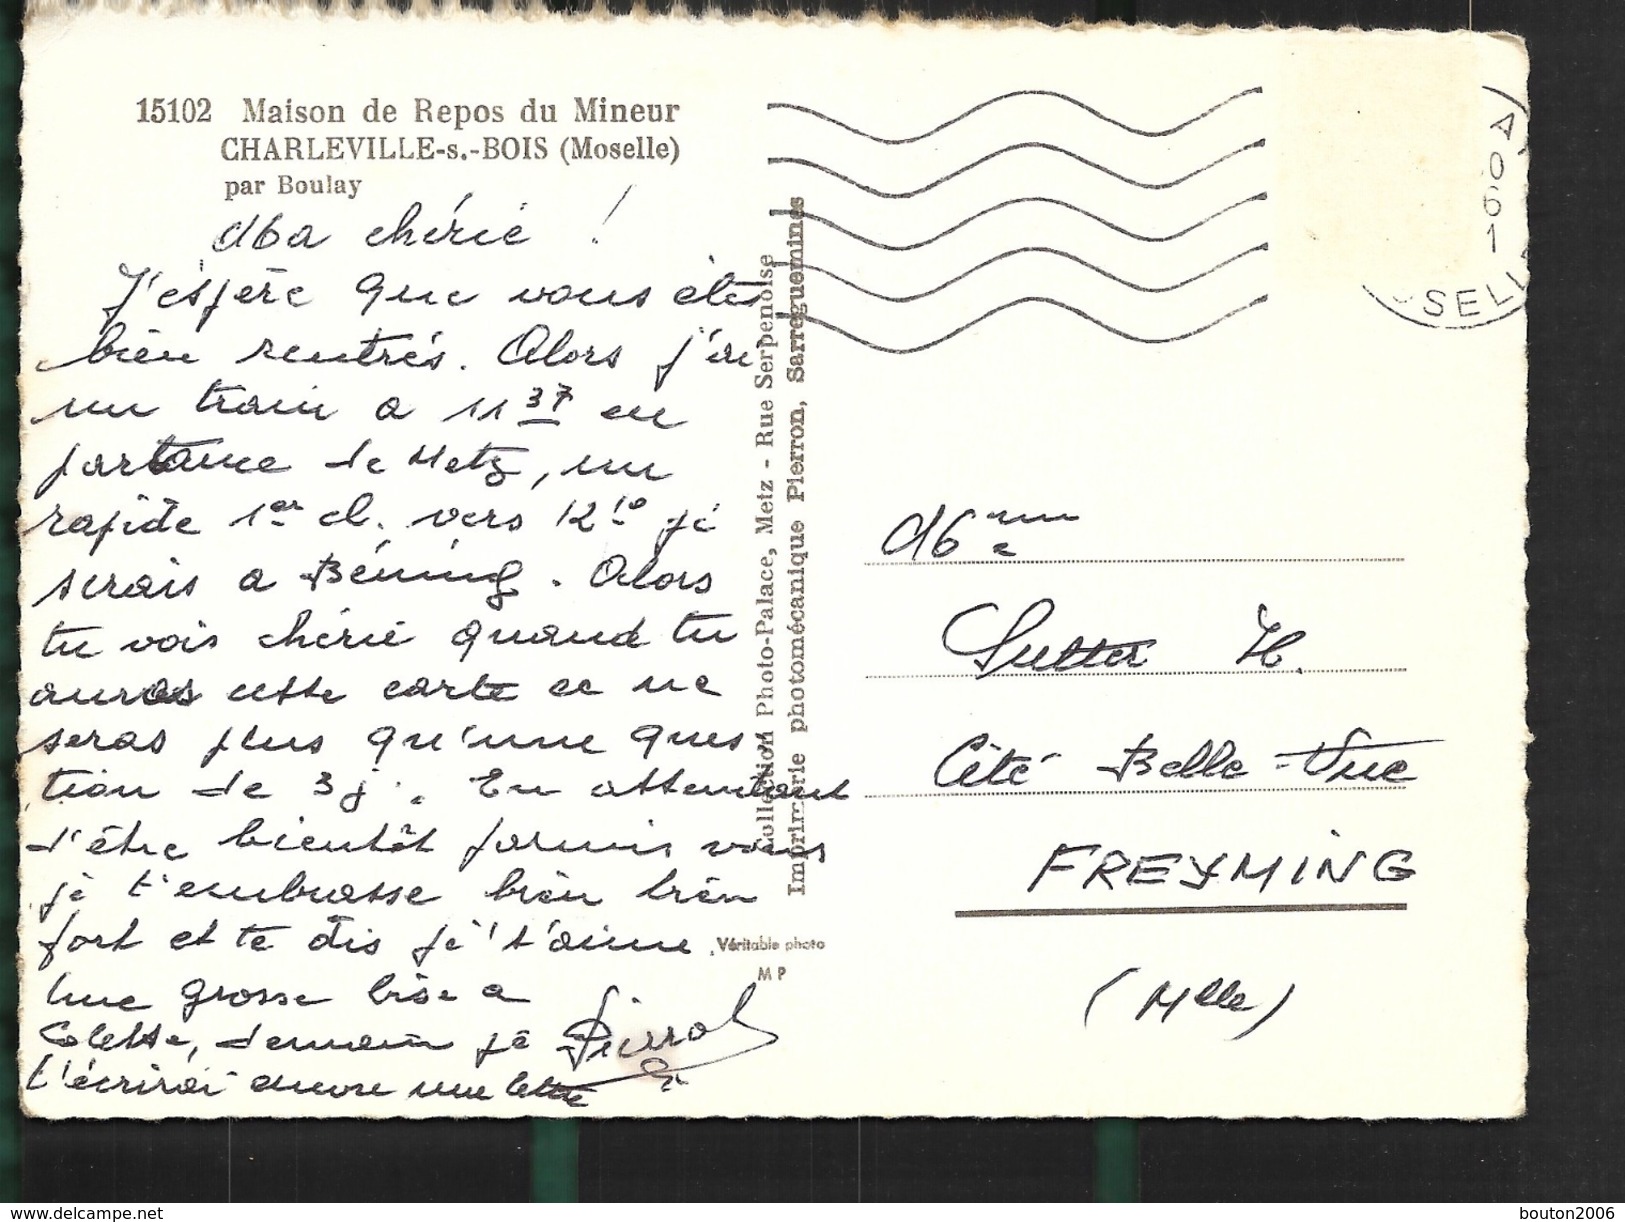 15102 Maison de Repos du Mineur
CHARLEVILLE-s.-BOIS (Moselle)
par Boulay
Ma chérie !
J'éspère que vous êtes
bien rentrés. Alors j'ai
un train a 11 37 en
partance de Metz, un
rapide 1er cl. vers 12 10 je
serais a Béning. Alors
tu vois chérie quand tu
auras cette carte ce ne
seras plus qu'une ques-
tion de 3 j. En attendant
d'être bientôt parmis vous
je t'embrasse bien bien
fort et te dis je t'aime
Une grosse bise a
Colette, demain je
t'écrirai encore une lettre
Pierrot
Collection Photo-Palace, Metz - Rue Serpenoise
Imprimerie photomécanique Pierron, Sarreguemines
Véritable photo
MP
SELL
Mme
Sutter H.
Cité Belle-Vue
FREYMING
(Mlle)
https://www.delcampe.net
bouton2006